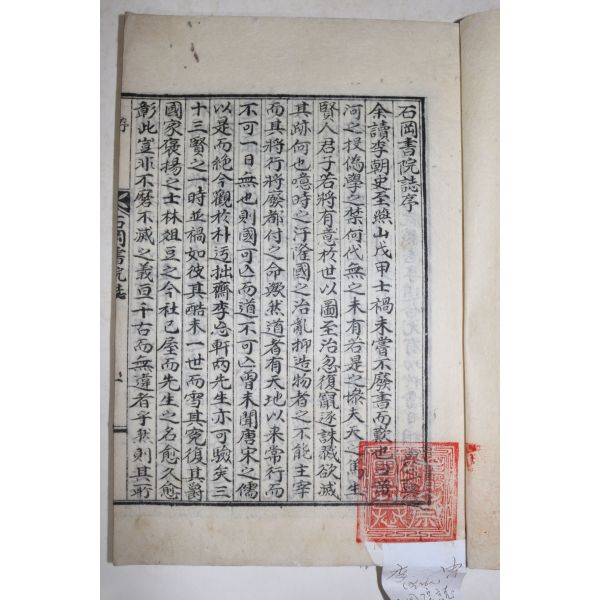 石岡書院誌序
余讀李朝史至燕山戊甲士禍未嘗不廢書而歎也
河之投偽學之禁何代無之未有若是之慘夫天之篤生
賢人君子若將有意於世以圖至治忽復竄逐誅戮欲滅
其跡何也噫時之汙隆國之治亂抑造物者之不能主宰
而其將行將廢都付之命歟然道者有天地以來常行而
不可一日無也則國可亡而道不可亡曾未聞唐宋之儒
以是而絕今觀於朴迃拙齋李忘軒兩先生亦可驗矣三
十三賢之一時並禍如彼其酷未一世而雪其冤復其爵
國家褒揚之士林俎豆之今社已屋而先生之名愈久愈
彰此豈非不磨不滅之義亘千古而無違者乎然則其所
序
石岡書院誌